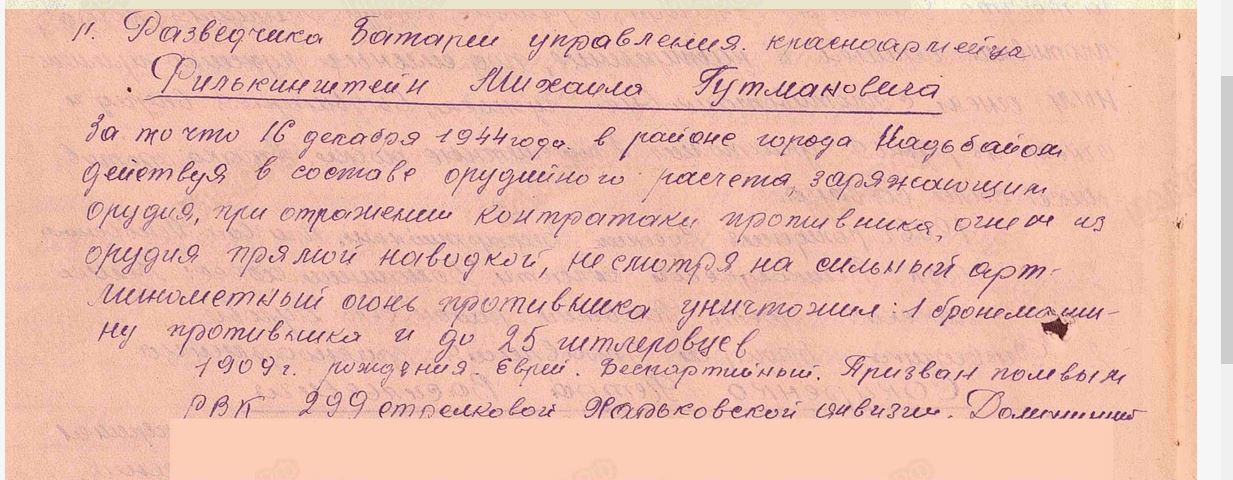 11. Разведчика Батареи управления. красноармейца
Филькинштейн Михаила Гутмановича
За то что 16 декабря 1944 года. в районе города Надьбайом
действуя в составе орудийного расчета, заряжающим
орудия, при отражении контратаки противника, огнем из
орудия прямой наводкой, несмотря на сильный арт-
минометный огонь противника уничтожил: 1 бронемаши-
ну противника и до 25 гитлеровцев
1909 г. рождения. Еврей. Беспартийный. Призван полевым
РВК 299 стрелковой Харьковской дивизии.